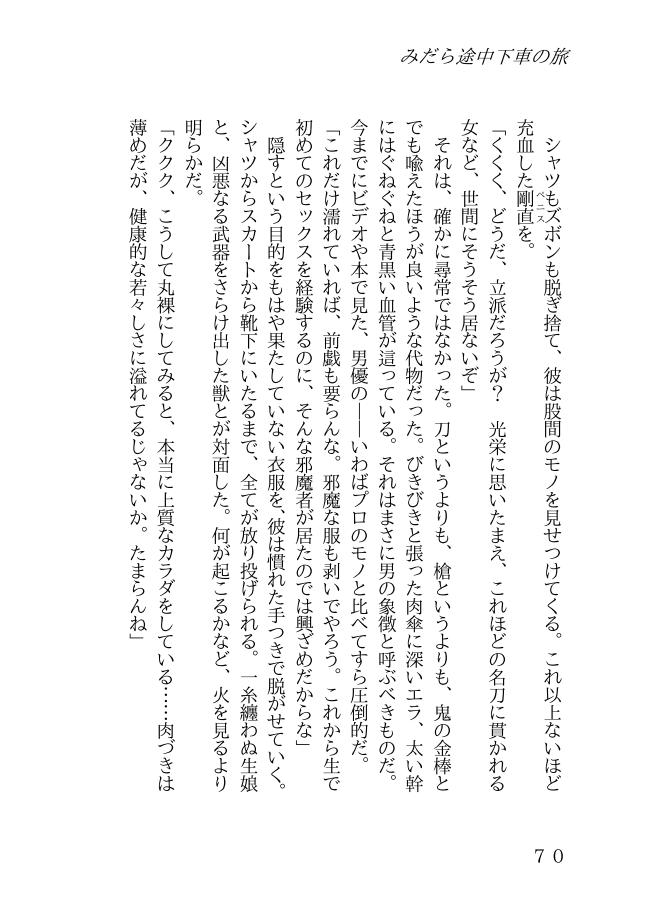 みだら途中下車の旅
シャツもズボンも脱ぎ捨て、彼は股間のモノを見せつけてくる。これ以上ないほど
充血した剛直を。
ペニス
「くくく、どうだ、立派だろうが？　光栄に思いたまえ、これほどの名刀に貫かれる
女など、世間にそうそう居ないぞ」
それは、確かに尋常ではなかった。刀というよりも、槍というよりも、鬼の金棒と
でも喩えたほうが良いような代物だった。びきびきと張った肉傘に深いエラ、太い幹
にはぐねぐねと青黒い血管が這っている。それはまさに男の象徴と呼ぶべきものだ。
今までにビデオや本で見た、男優の――いわばプロのモノと比べてすら圧倒的だ。
「これだけ濡れていれば、前戯も要らんな。邪魔な服も剥いでやろう。これから生で
初めてのセックスを経験するのに、そんな邪魔者が居たのでは興ざめだからな」
隠すという目的をもはや果たしていない衣服を、彼は慣れた手つきで脱がせていく。
シャツからスカートから靴下にいたるまで、全てが放り投げられる。一糸纏わぬ生娘
と、凶悪なる武器をさらけ出した獣とが対面した。何が起こるかなど、火を見るより
明らかだ。
「ククク、こうして丸裸にしてみると、本当に上質なカラダをしている……肉づきは
薄めだが、健康的な若々しさに溢れてるじゃないか。たまらんね」
７０